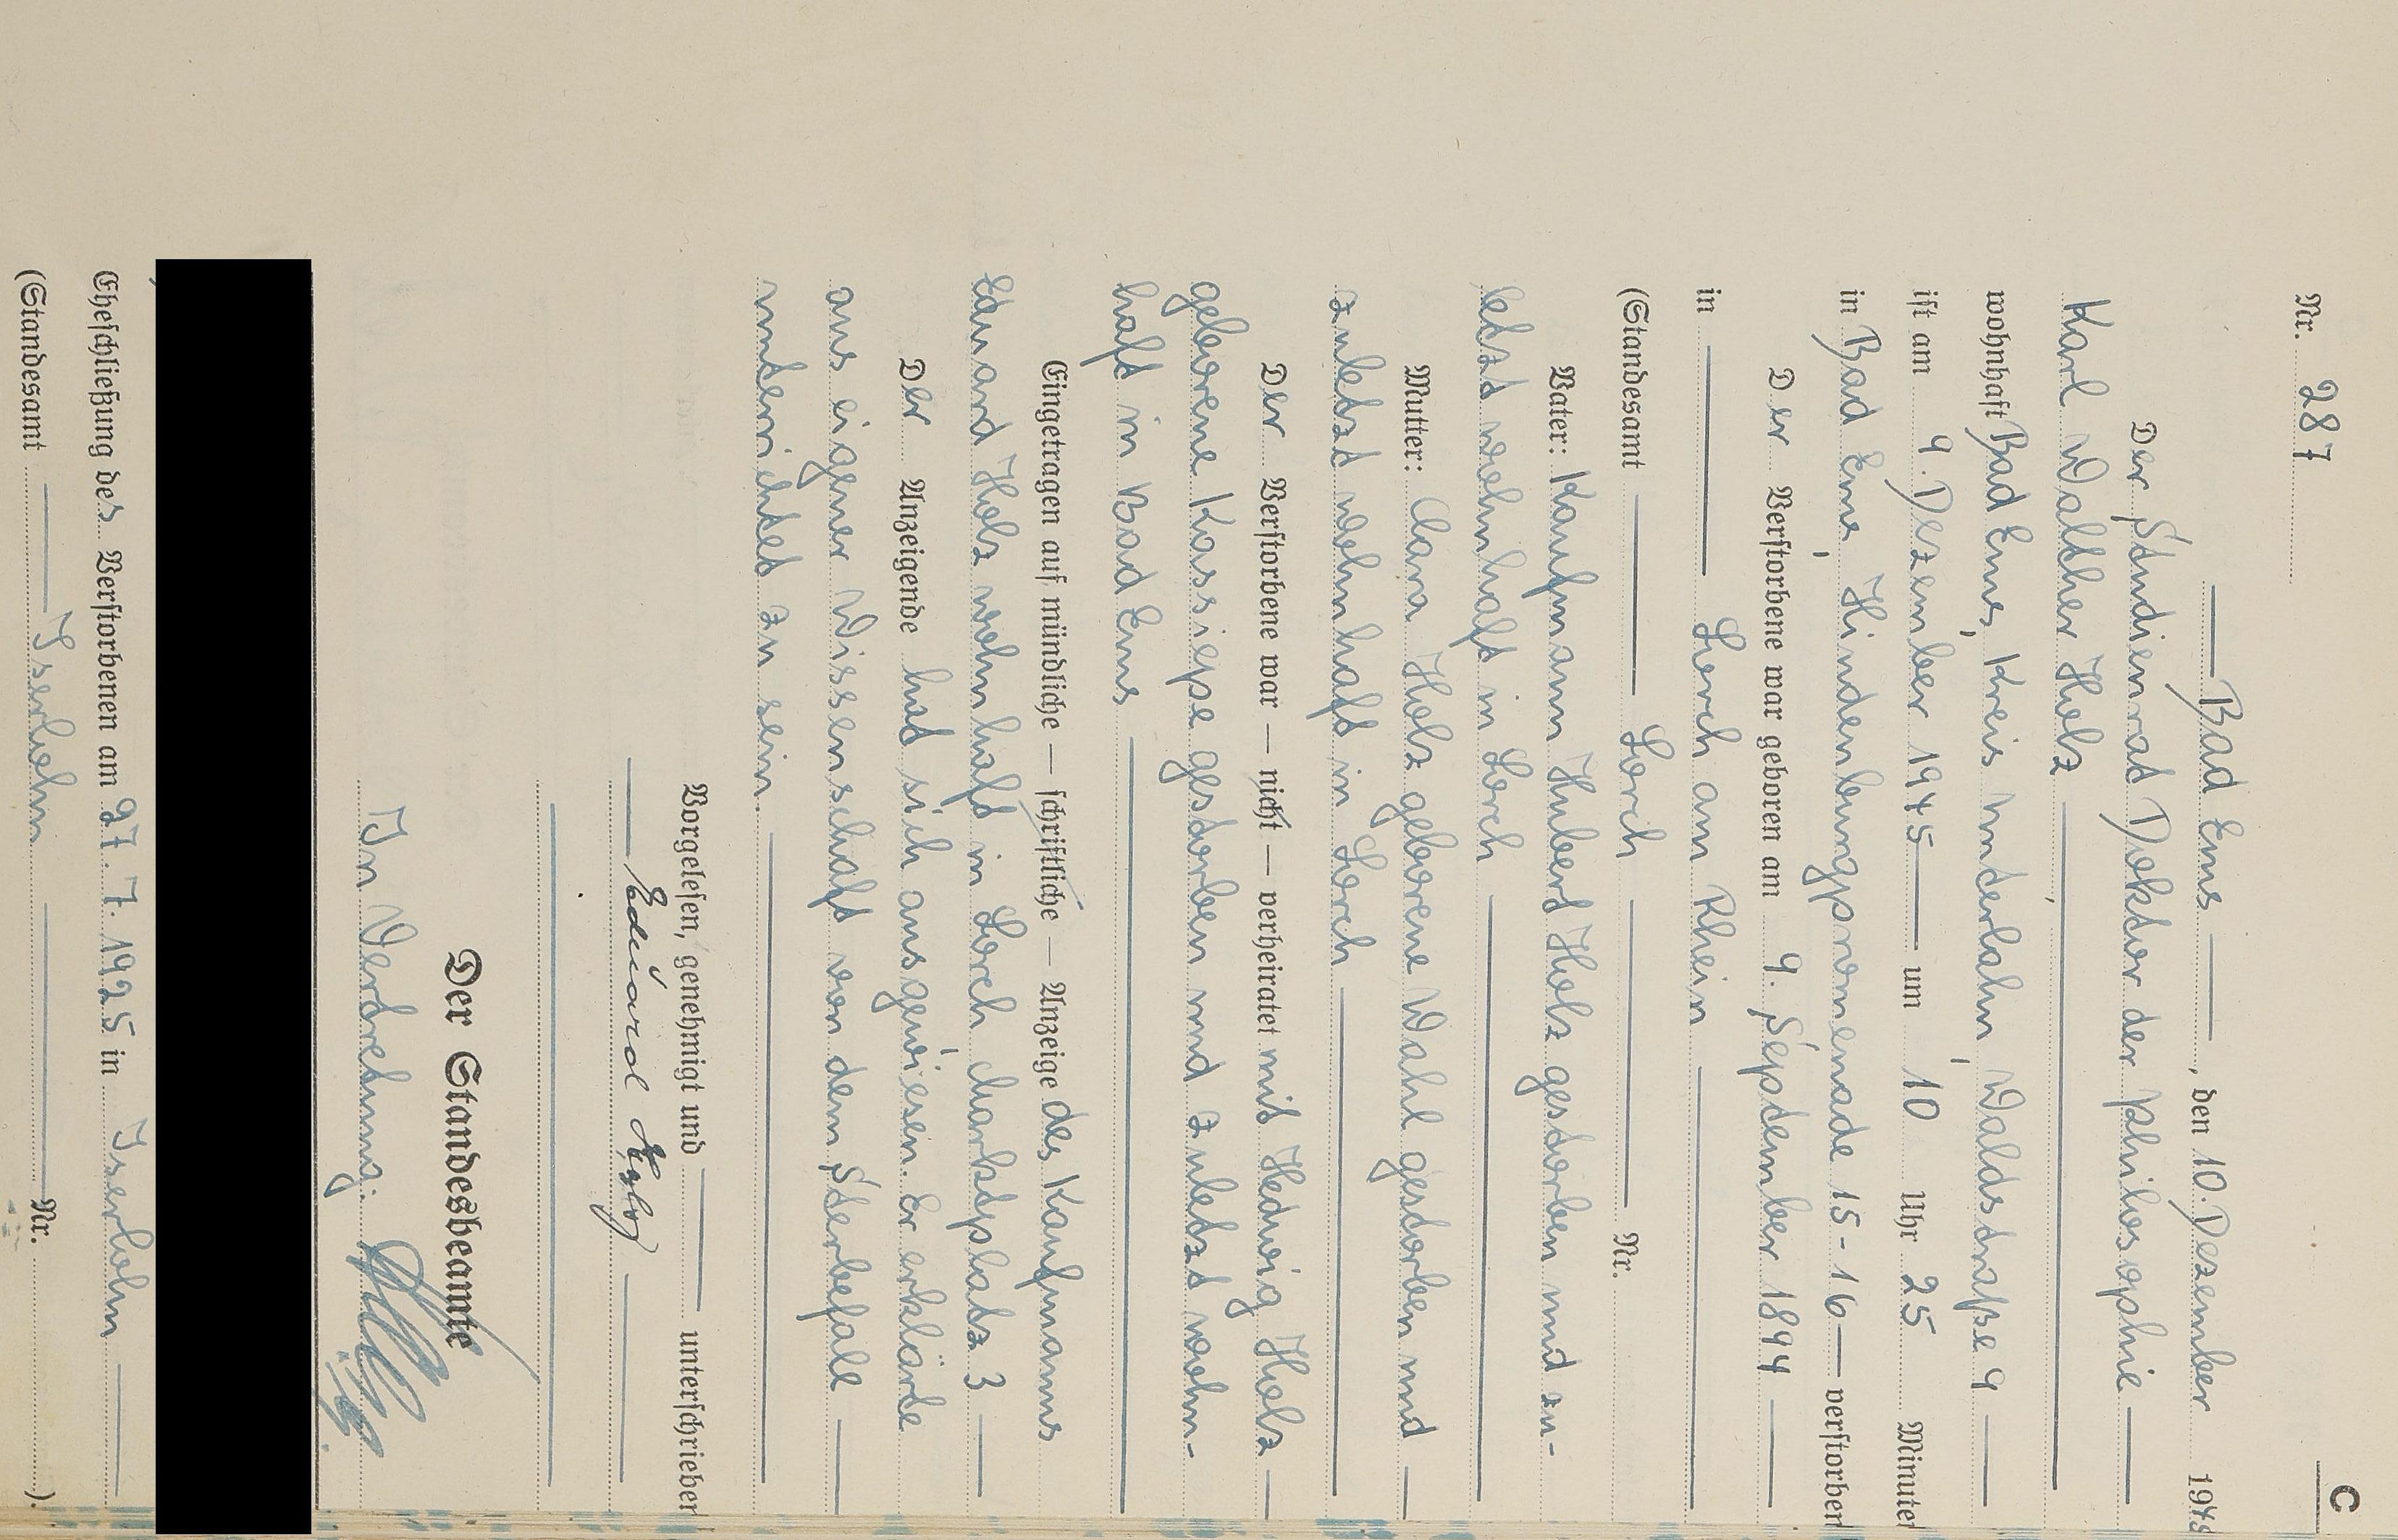 C
Nr. 287
Bad Ems, den 10. Dezember 1945
Der Studienrat Doktor der Philosophie
Karl Walther Holz
wohnhaft Bad Ems, Kreis Unterlahn, Waldstraße 9
ist am 9. Dezember 1945 um 10 Uhr 25 Minuten
in Bad Ems, Hindenburgpromenade 15-16 verstorben
Der Verstorbene war geboren am 9. September 1894
in Lorch am Rhein
(Standesamt Lorch Nr.
Vater: Kaufmann Hubert Holz gestorben und zu-
letzt wohnhaft in Lorch
Mutter: Clara Holz geborene Wahl gestorben und
zuletzt wohnhaft in Lorch
Der Verstorbene war — nicht — verheiratet mit Hedwig Holz
geborene Kassiepe gestorben und zuletzt wohn-
haft in Bad Ems
Eingetragen auf mündliche — schriftliche — Anzeige des Kaufmanns
Eduard Holz wohnhaft in Lorch Marktplatz 3
Der Anzeigende hat sich ausgewiesen. Er erklärte
aus eigener Wissenschaft von dem Sterbefall
unterrichtet zu sein.
Vorgelesen, genehmigt und unterschrieben
Eduard Holz
Der Standesbeamte
In Vertretung:
Eheschließung des Verstorbenen am 27. 7. 1925 in Iserlohn
(Standesamt Iserlohn Nr. ).